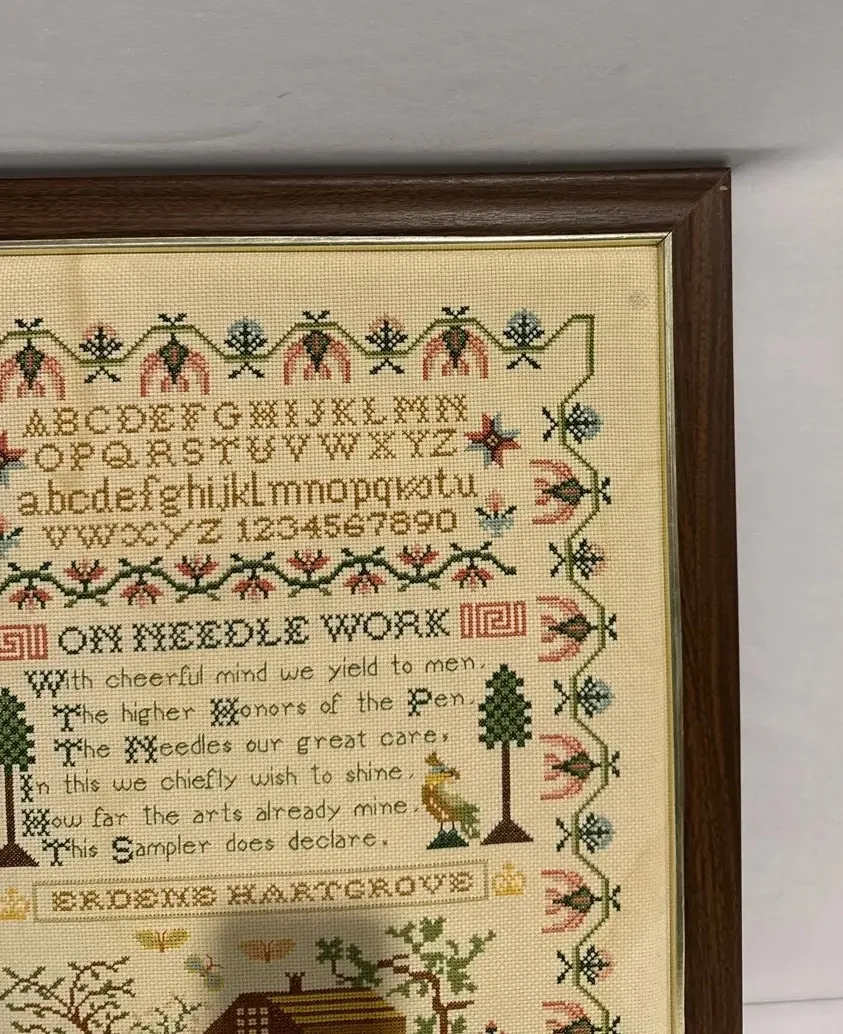 ABCDEFGHIJKLMN
OPQRSTUVWXYZ
abcdefghijklmnopqrstu
vwxyz 1234567890
ON NEEDLE WORK
With cheerful mind we yield to men.
The higher Honors of the Pen,
The Needles our great care,
In this we chiefly wish to shine,
How far the arts already mine,
This Sampler does declare.
ERDENE HARTGROVE